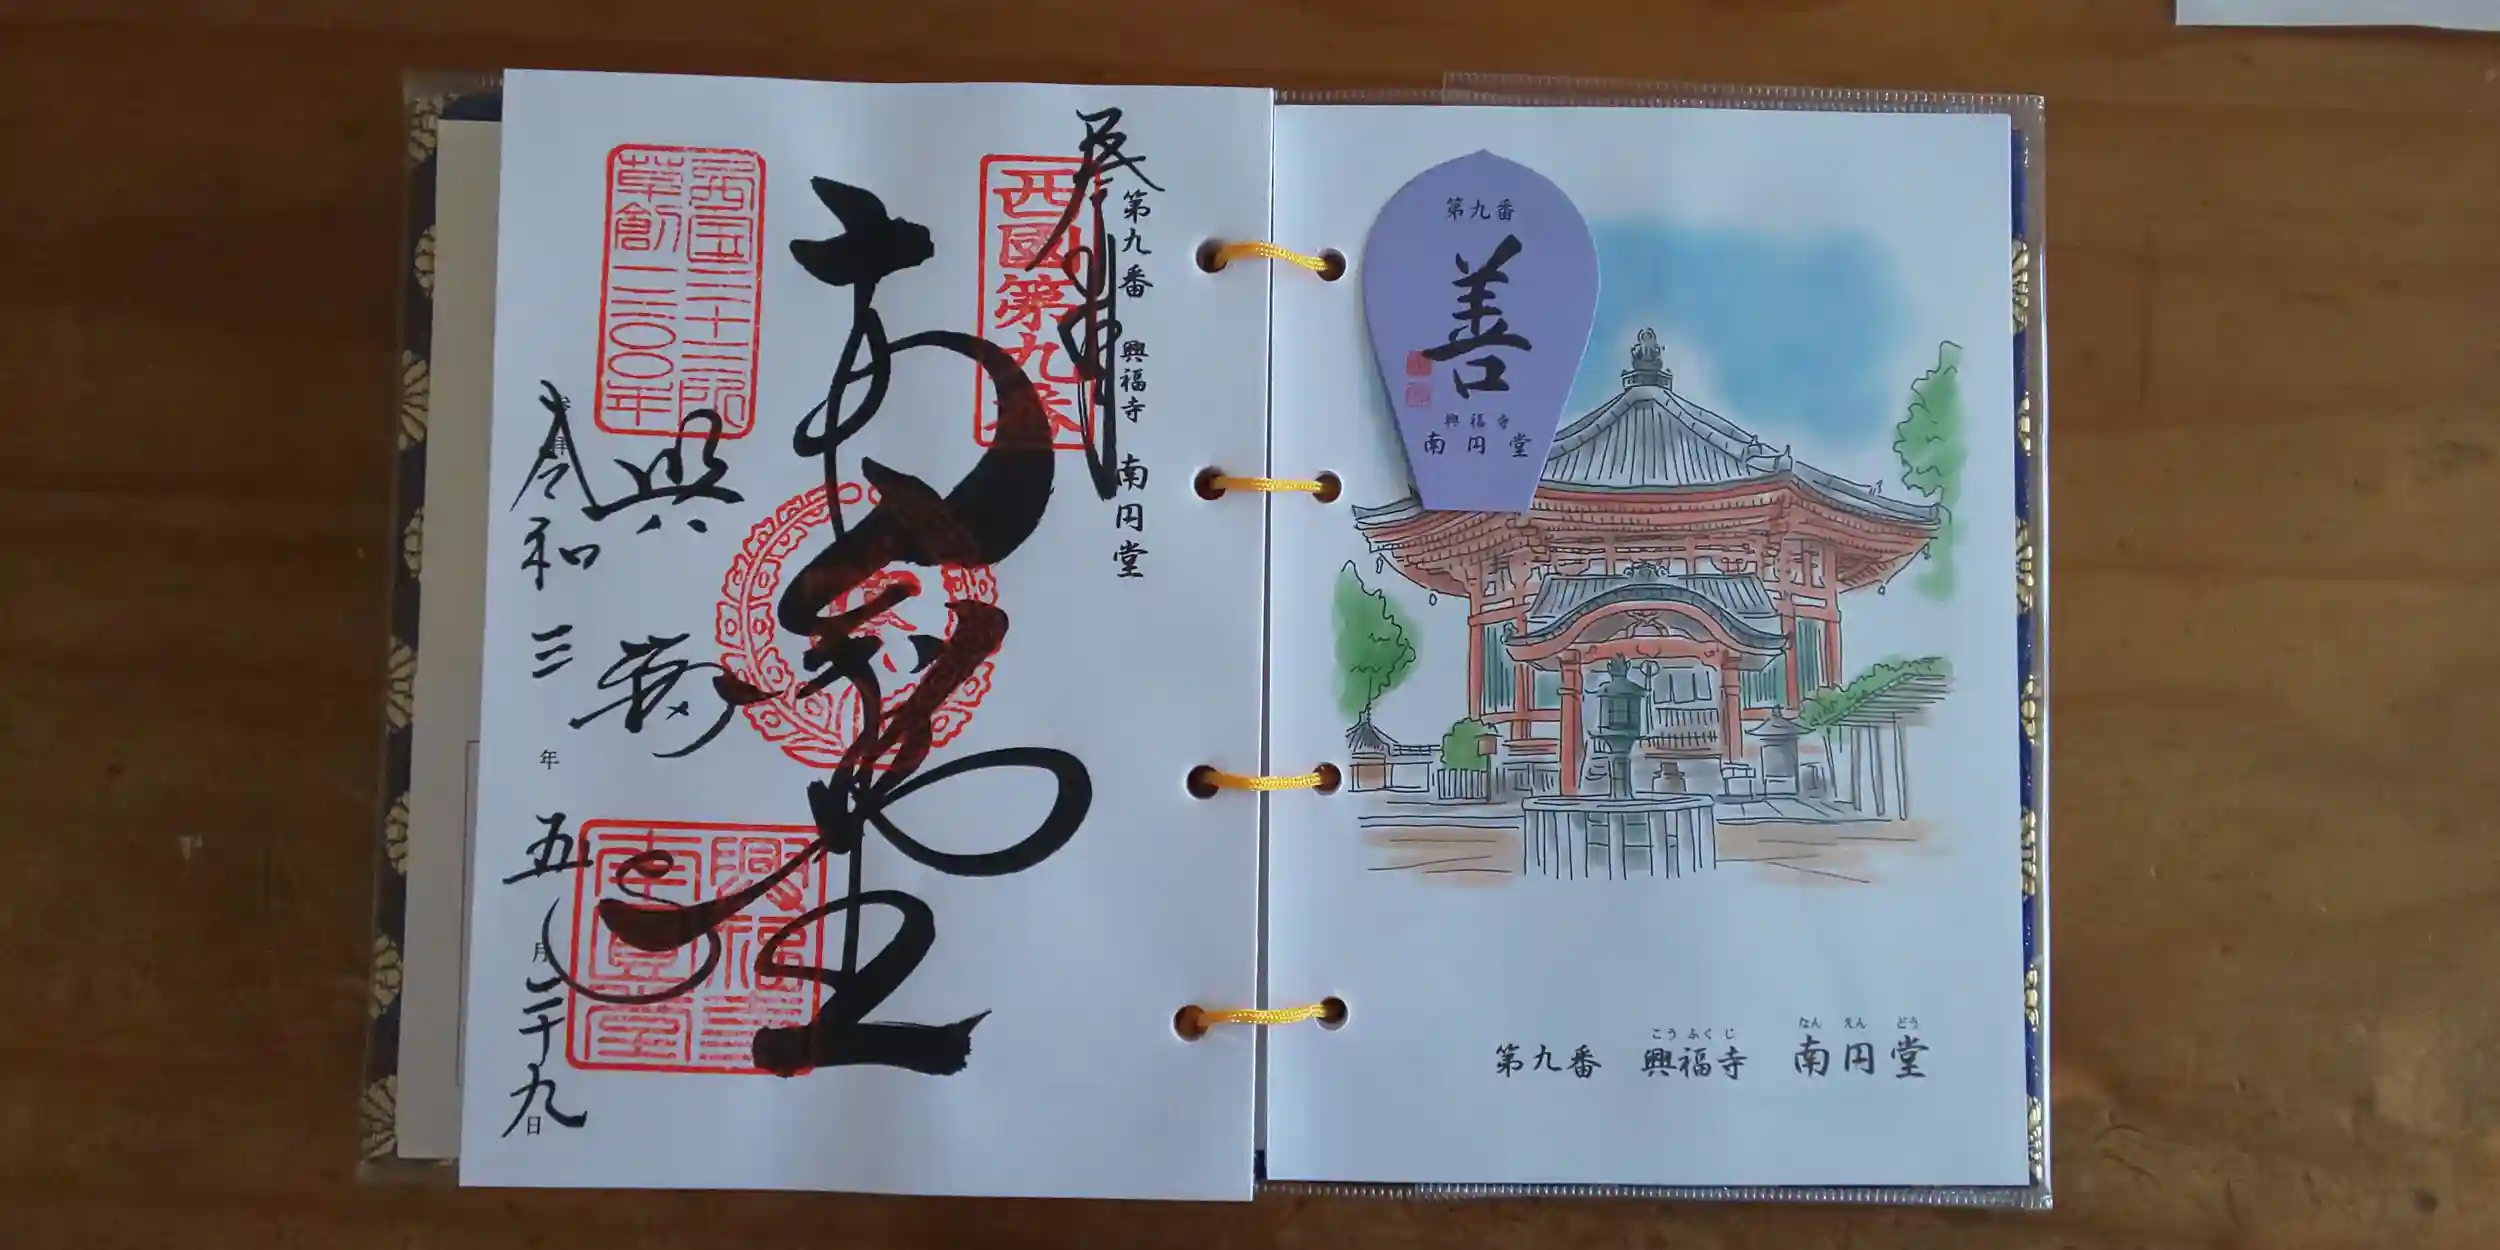 奉拝
第九番 興福寺 南円堂
西國第九番
南円堂
西国三十三所
草創一三〇〇年
興福寺
興福寺
南圓堂
令和三年五月二十九日
第九番
善
興福寺
南円堂
こうふくじ なんえんどう
第九番 興福寺 南円堂